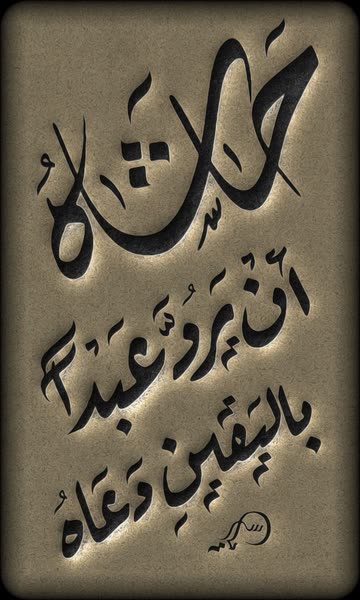 حَاشَاهُ
أَنْ يَرُدَّ عَبْداً
بِاليَقِينِ دَعَاهُ